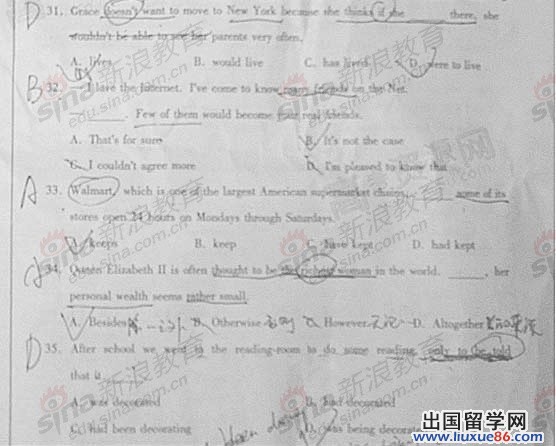 D 31. Grace doesn't want to move to New York because she thinks if she ______ there, she
wouldn't be able to see her parents very often.
A. lives B. would live C. has lived D. were to live
B 32. — I love the Internet. I've come to know many friends on the Net.
— ______. Few of them would become your real friends.
A. That's for sure B. It's not the case
C. I couldn't agree more D. I'm pleased to know that
A 33. Walmart, which is one of the largest American supermarket chains, ______ some of its
stores open 24 hours on Mondays through Saturdays.
A. keeps B. keep C. have kept D. had kept
34. Queen Elizabeth II is often thought to be the richest woman in the world. ______, her
personal wealth seems rather small.
A. Besides B. Otherwise 否则 C. However 无论 D. Altogether
D 35. After school we went to the reading-room to do some reading, only to be told
that it
A. was decorated B. had decorated
C. had been decorating D. was being decorated
新浪教育
edu.sina.com.cn
出国留学网
www.liuxue86.com